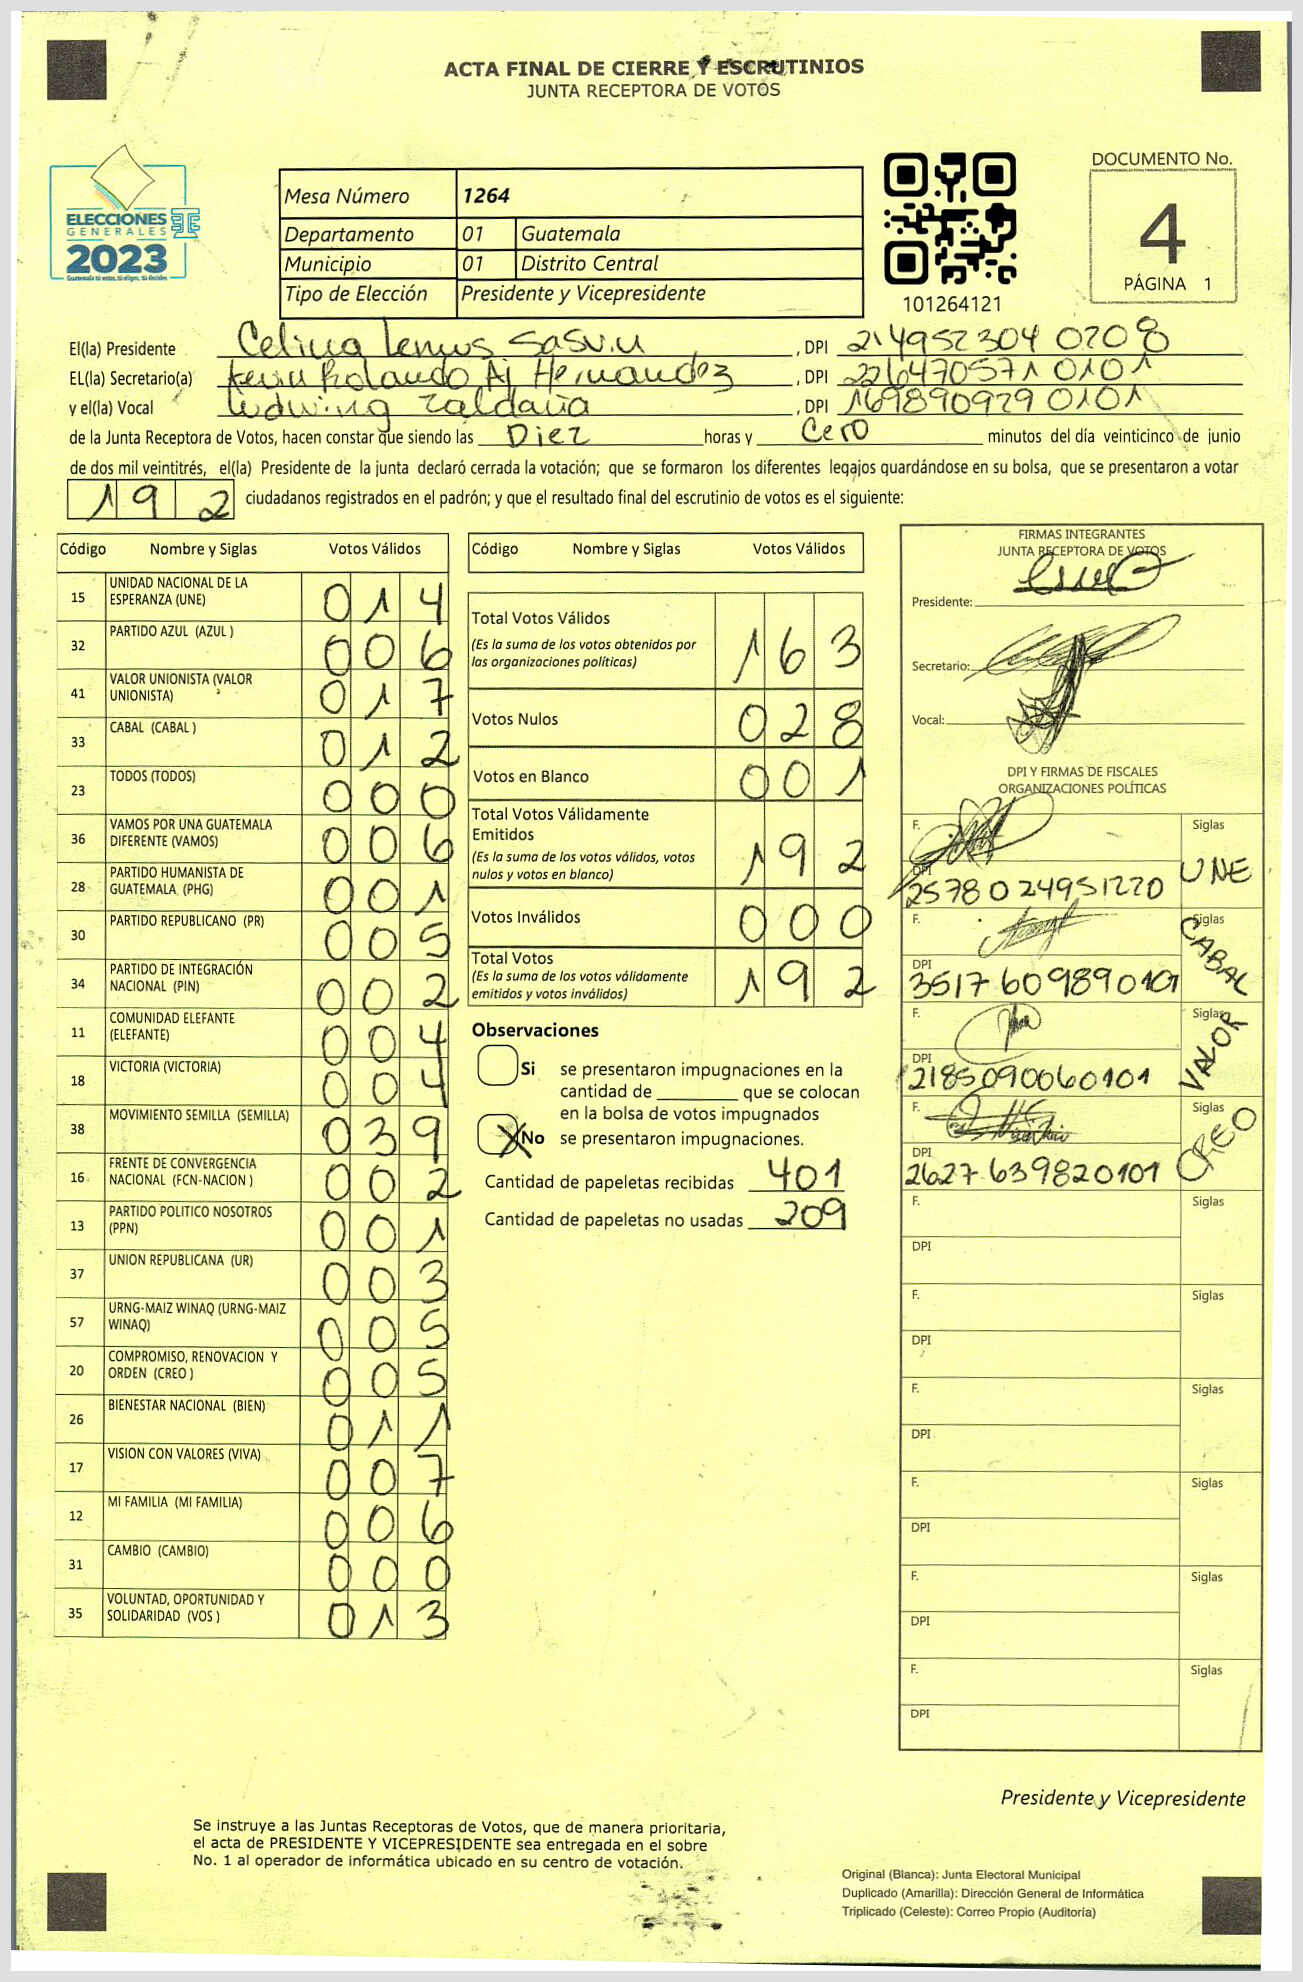 ACTA FINAL DE CIERRE Y ESCRUTINIOS
JUNTA RECEPTORA DE VOTOS
ELECCIONES
GENERALES
2023
Guatemala tú votas, tú eliges, tú decides
Mesa Número 1264
Departamento 01 Guatemala
Municipio 01 Distrito Central
Tipo de Elección Presidente y Vicepresidente
101264121
DOCUMENTO No.
4
PÁGINA 1
El(la) Presidente Celina Lemus , DPI 214952304 0208
EL(la) Secretario(a) Kevin Rolando Aj Hernandez , DPI 226470571 0101
y el(la) Vocal Ludwing Zaldaña , DPI 169890929 0101
de la Junta Receptora de Votos, hacen constar que siendo las Diez horas y Cero minutos del día veinticinco de junio
de dos mil veintitrés, el(la) Presidente de la junta declaró cerrada la votación; que se formaron los diferentes legajos guardándose en su bolsa, que se presentaron a votar
192 ciudadanos registrados en el padrón; y que el resultado final del escrutinio de votos es el siguiente:
Código Nombre y Siglas Votos Válidos
15 UNIDAD NACIONAL DE LA ESPERANZA (UNE) 014
32 PARTIDO AZUL (AZUL ) 006
41 VALOR UNIONISTA (VALOR UNIONISTA) 017
33 CABAL (CABAL ) 012
23 TODOS (TODOS) 000
36 VAMOS POR UNA GUATEMALA DIFERENTE (VAMOS) 006
28 PARTIDO HUMANISTA DE GUATEMALA (PHG) 001
30 PARTIDO REPUBLICANO (PR) 005
34 PARTIDO DE INTEGRACIÓN NACIONAL (PIN) 002
11 COMUNIDAD ELEFANTE (ELEFANTE) 004
18 VICTORIA (VICTORIA) 004
38 MOVIMIENTO SEMILLA (SEMILLA) 039
16 FRENTE DE CONVERGENCIA NACIONAL (FCN-NACION ) 002
13 PARTIDO POLITICO NOSOTROS (PPN) 001
37 UNION REPUBLICANA (UR) 003
57 URNG-MAIZ WINAQ (URNG-MAIZ WINAQ) 005
20 COMPROMISO, RENOVACION Y ORDEN (CREO ) 005
26 BIENESTAR NACIONAL (BIEN) 011
17 VISION CON VALORES (VIVA) 007
12 MI FAMILIA (MI FAMILIA) 006
31 CAMBIO (CAMBIO) 000
35 VOLUNTAD, OPORTUNIDAD Y SOLIDARIDAD (VOS ) 013
Código Nombre y Siglas Votos Válidos
Total Votos Válidos 163
(Es la suma de los votos obtenidos por
las organizaciones políticas)
Votos Nulos 028
Votos en Blanco 001
Total Votos Válidamente
Emitidos 192
(Es la suma de los votos válidos, votos
nulos y votos en blanco)
Votos Inválidos 000
Total Votos 192
(Es la suma de los votos válidamente
emitidos y votos inválidos)
Observaciones
Si se presentaron impugnaciones en la
cantidad de ________ que se colocan
en la bolsa de votos impugnados
X No se presentaron impugnaciones.
Cantidad de papeletas recibidas 401
Cantidad de papeletas no usadas 209
FIRMAS INTEGRANTES
JUNTA RECEPTORA DE VOTOS
Presidente:
Secretario:
Vocal:
DPI Y FIRMAS DE FISCALES
ORGANIZACIONES POLÍTICAS
F. Siglas UNE
DPI 2578024951220
F. Siglas CABAL
DPI 3517609890101
F. Siglas VALOR
DPI 2185090060101
F. Siglas CREO
DPI 2627639820101
F. Siglas
DPI
F. Siglas
DPI
F. Siglas
DPI
F. Siglas
DPI
F. Siglas
DPI
F. Siglas
DPI
Presidente y Vicepresidente
Se instruye a las Juntas Receptoras de Votos, que de manera prioritaria,
el acta de PRESIDENTE Y VICEPRESIDENTE sea entregada en el sobre
No. 1 al operador de informática ubicado en su centro de votación.
Original (Blanca): Junta Electoral Municipal
Duplicado (Amarilla): Dirección General de Informática
Triplicado (Celeste): Correo Propio (Auditoría)